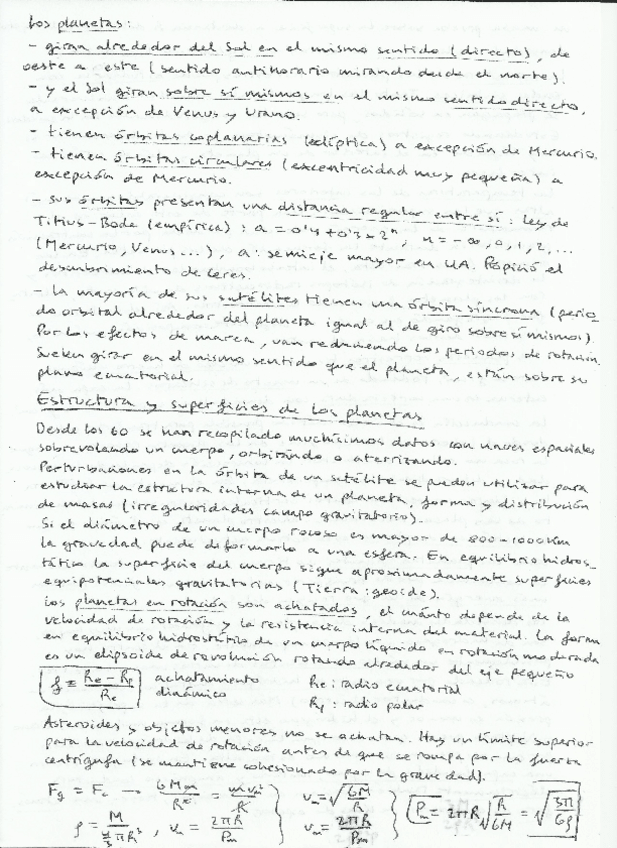 Los planetas:
- giran alrededor del Sol en el mismo sentido (directo), de
oeste a este (sentido antihorario mirando desde el norte).
- y el Sol giran sobre sí mismos en el mismo sentido directo,
a excepción de Venus y Urano.
- tienen órbitas coplanarias (eclíptica) a excepción de Mercurio.
- tienen órbitas circulares (excentricidad muy pequeña) a
excepción de Mercurio.
- sus órbitas presentan una distancia regular entre sí: Ley de
Titius-Bode (empírica): a = 0'4 + 0'3 × 2ⁿ, n = -∞, 0, 1, 2, ...
(Mercurio, Venus...), a: semieje mayor en UA. Propició el
descubrimiento de Ceres.
- la mayoría de sus satélites tienen una órbita síncrona (perio-
do orbital alrededor del planeta igual al de giro sobre sí mismos).
Por los efectos de marea, van reduciendo los periodos de rotación.
Suelen girar en el mismo sentido que el planeta, están sobre su
plano ecuatorial.
Estructura y superficies de los planetas
Desde los 60 se han recopilado muchísimos datos con naves espaciales
sobrevolando un cuerpo, orbitando o aterrizando.
Perturbaciones en la órbita de un satélite se pueden utilizar para
estudiar la estructura interna de un planeta, forma y distribución
de masas (irregularidades campo gravitatorio).
Si el diámetro de un cuerpo rocoso es mayor de 800-1000 Km
la gravedad puede deformarlo a una esfera. En equilibrio hidros-
tático la superficie del cuerpo sigue aproximadamente superficies
equipotenciales gravitatorias (Tierra: geoide).
Los planetas en rotación son achatados, el cuánto depende de la
velocidad de rotación y la resistencia interna del material. La forma
en equilibrio hidrostático de un cuerpo líquido en rotación moderada
es un elipsoide de revolución rotando alrededor del eje pequeño
f ≡ (Re - Rp)/Re achatamiento Re: radio ecuatorial
dinámico Rp: radio polar
Asteroides y objetos menores no se achatan. Hay un límite superior
para la velocidad de rotación antes de que se rompa por la fuerza
centrífuga (se mantiene cohesionado por la gravedad).
Fg = Fc → GMm/R² = m vm²/R } vm = √(GM/R) } Pm = 2πR √(R/GM) = √(3π/Gρ)
ρ = M/(4/3 πR³), vm = 2πR/Pm } vm = 2πR/Pm